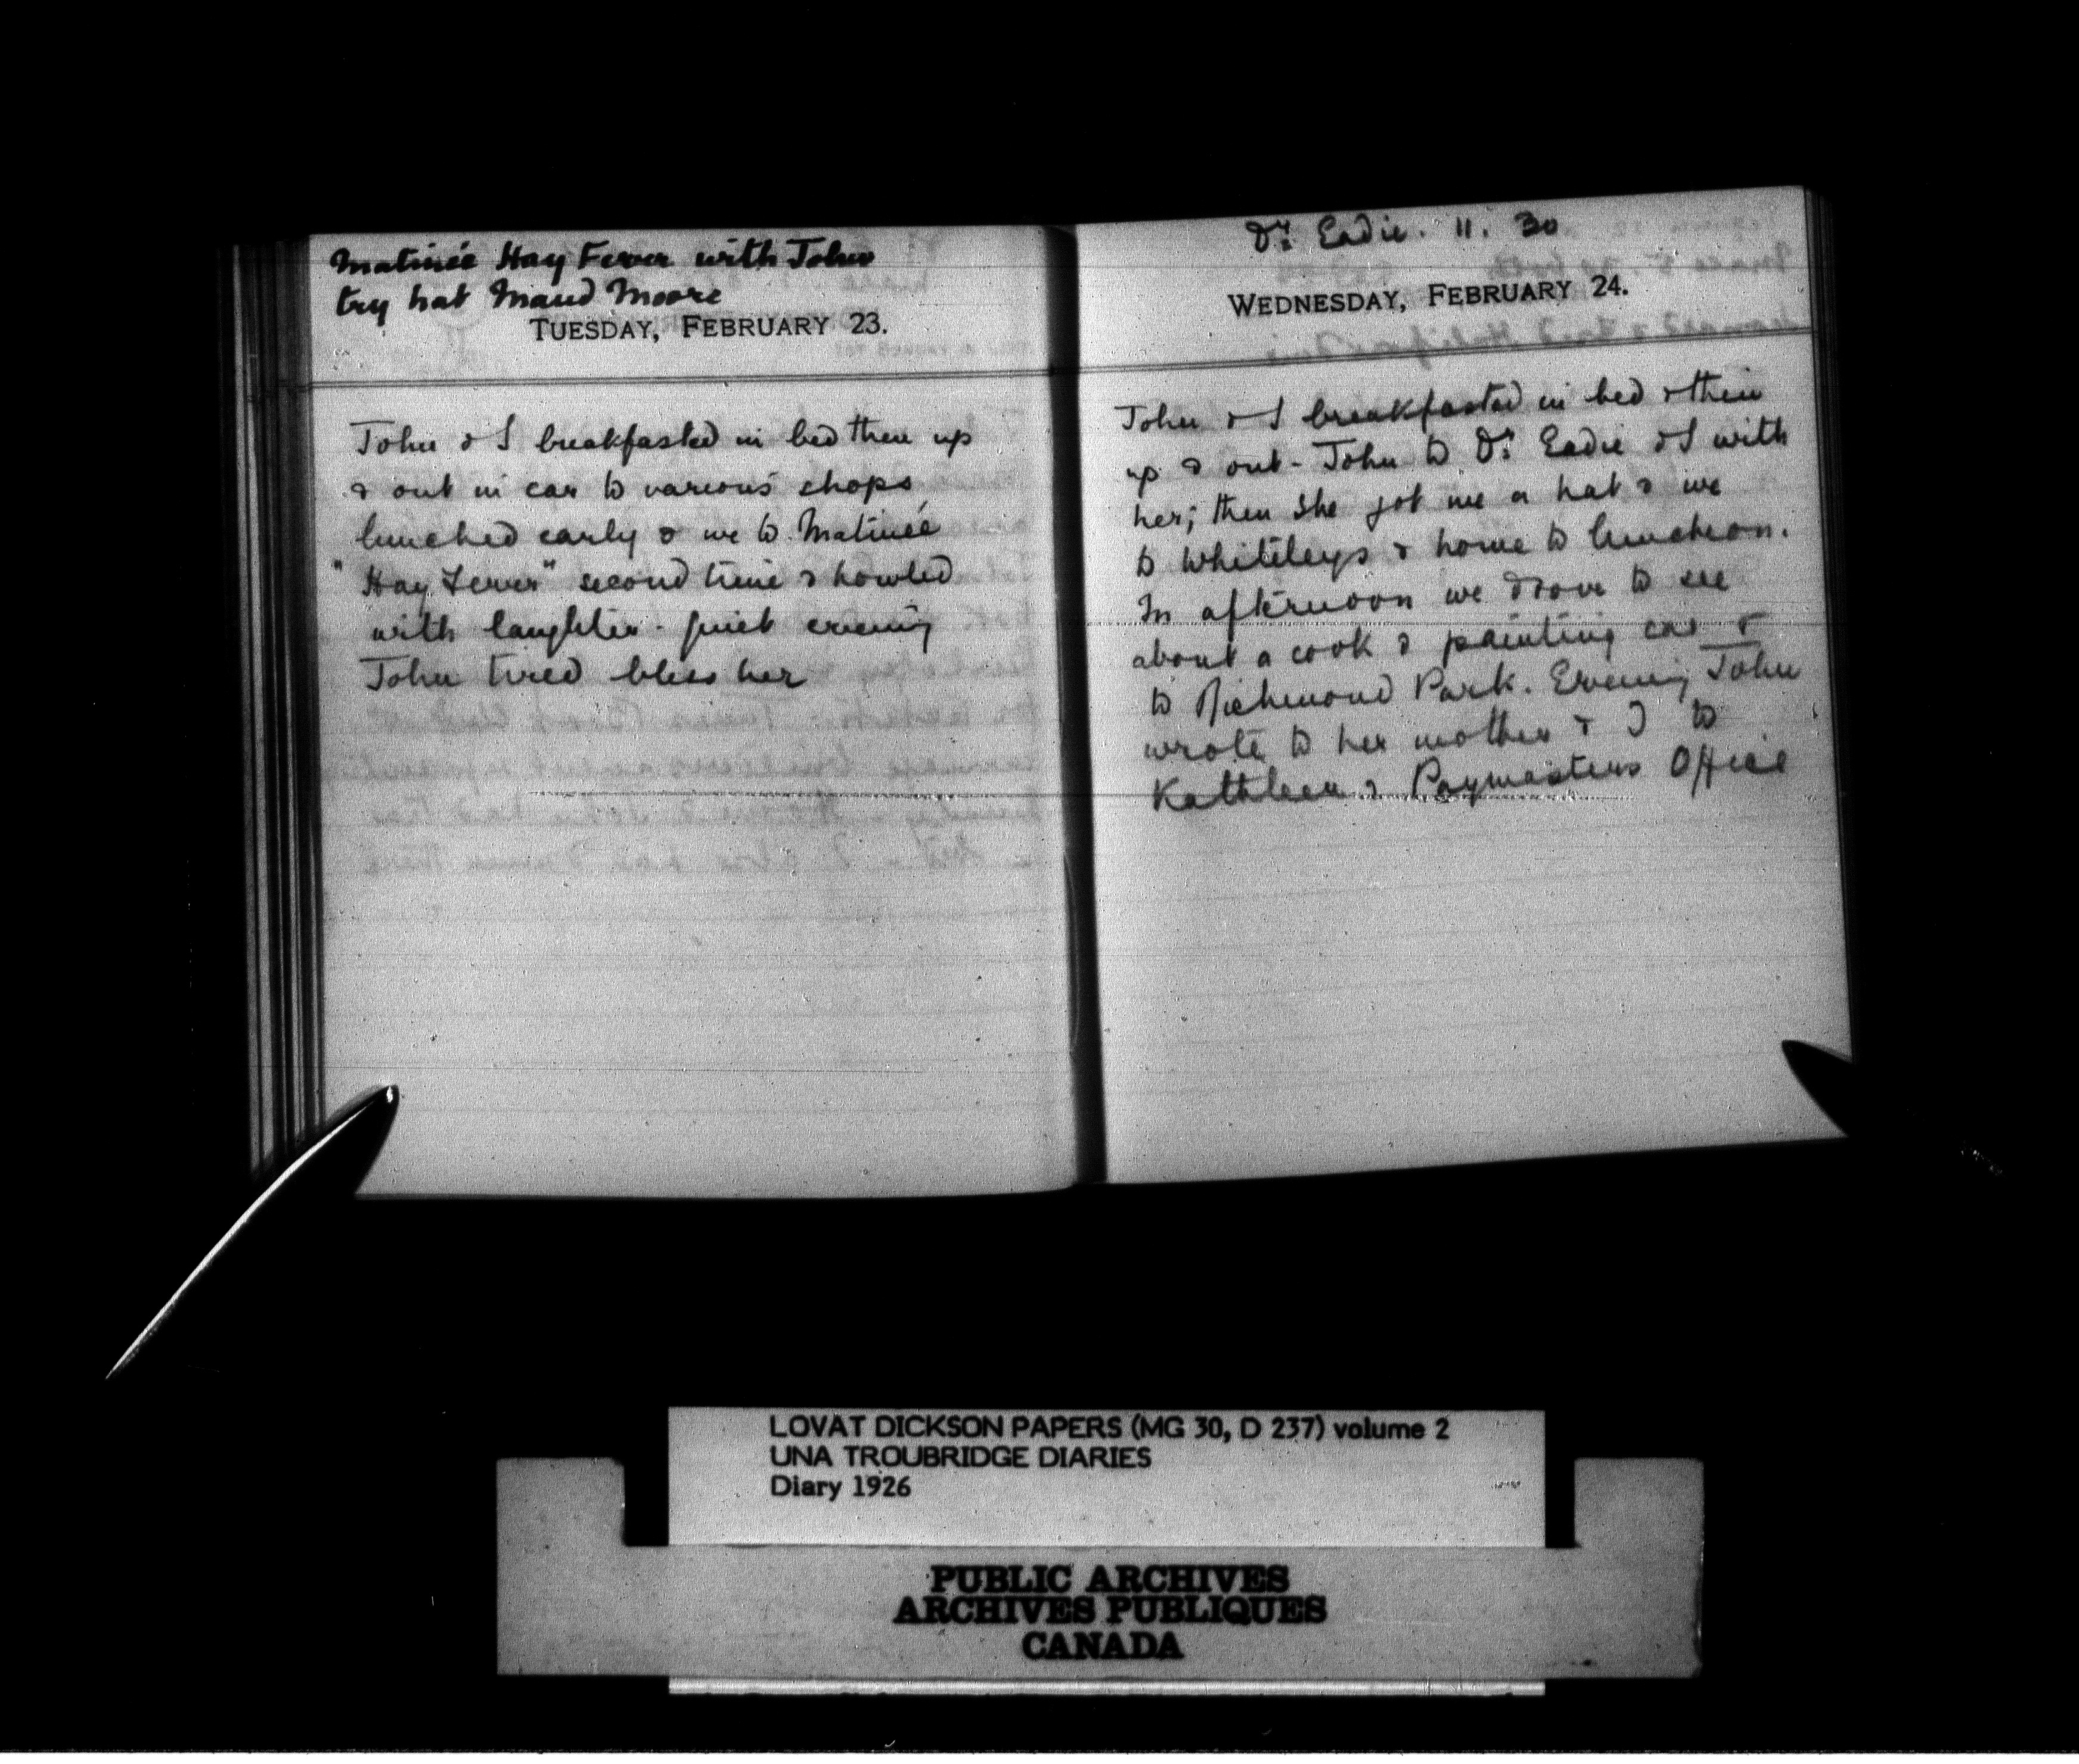 Matinée Hay Fever with John
try hat Maud Moore
TUESDAY, FEBRUARY 23.
John & I breakfasted in bed then up
& out in car to various shops
lunched early & we to Matinée
"Hay Fever" second time & howled
with laughter. quiet evening
John tired bless her
Dr. Eadie. 11. 30
WEDNESDAY, FEBRUARY 24.
John & I breakfasted in bed & then
up & out - John to Dr. Eadie & I with
her; then she got me a hat & we
to Whiteleys & home to luncheon.
In afternoon we drove to see
about a cook & painting car &
to Richmond Park. Evening John
wrote to her mother & I to
Kathleen & Paymasters Office
LOVAT DICKSON PAPERS (MG 30, D 237) volume 2
UNA TROUBRIDGE DIARIES
Diary 1926
PUBLIC ARCHIVES
ARCHIVES PUBLIQUES
CANADA